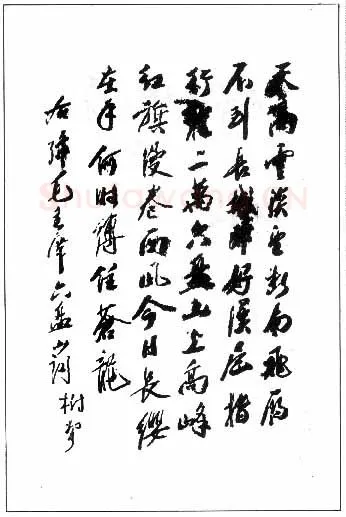 天高雲淡望断南飛雁
不到長城非好漢屈指
行程二萬六盤山上高峰
紅旗漫卷西風今日長纓
在手何時縛住蒼龍
右録毛主席六盤山詞 樹